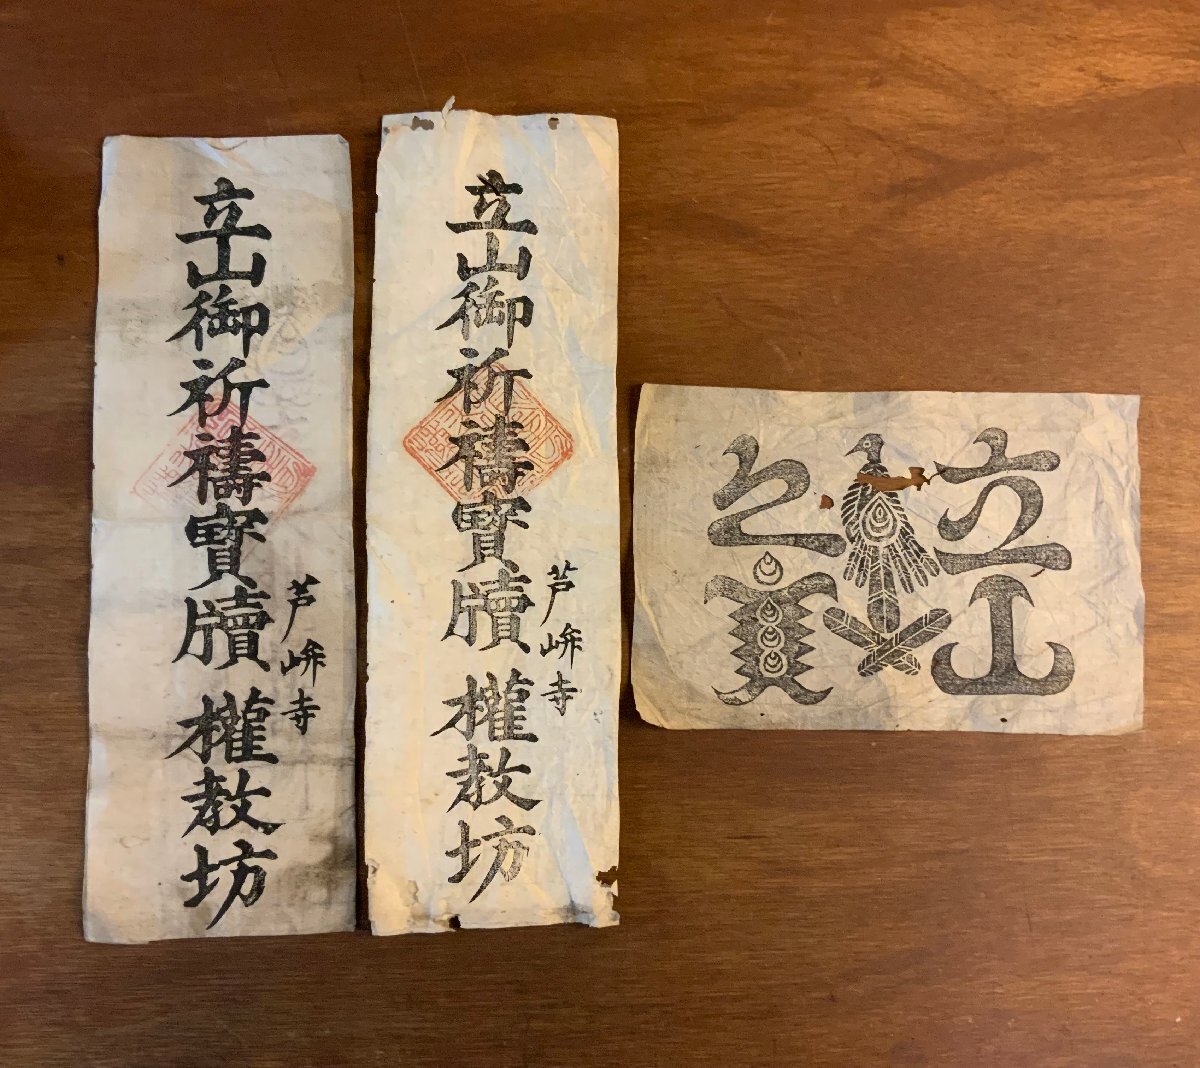 立山御祈禱寶牘 權教坊
芦峅寺
立山御祈禱寶牘 權教坊
芦峅寺
立山
之寳